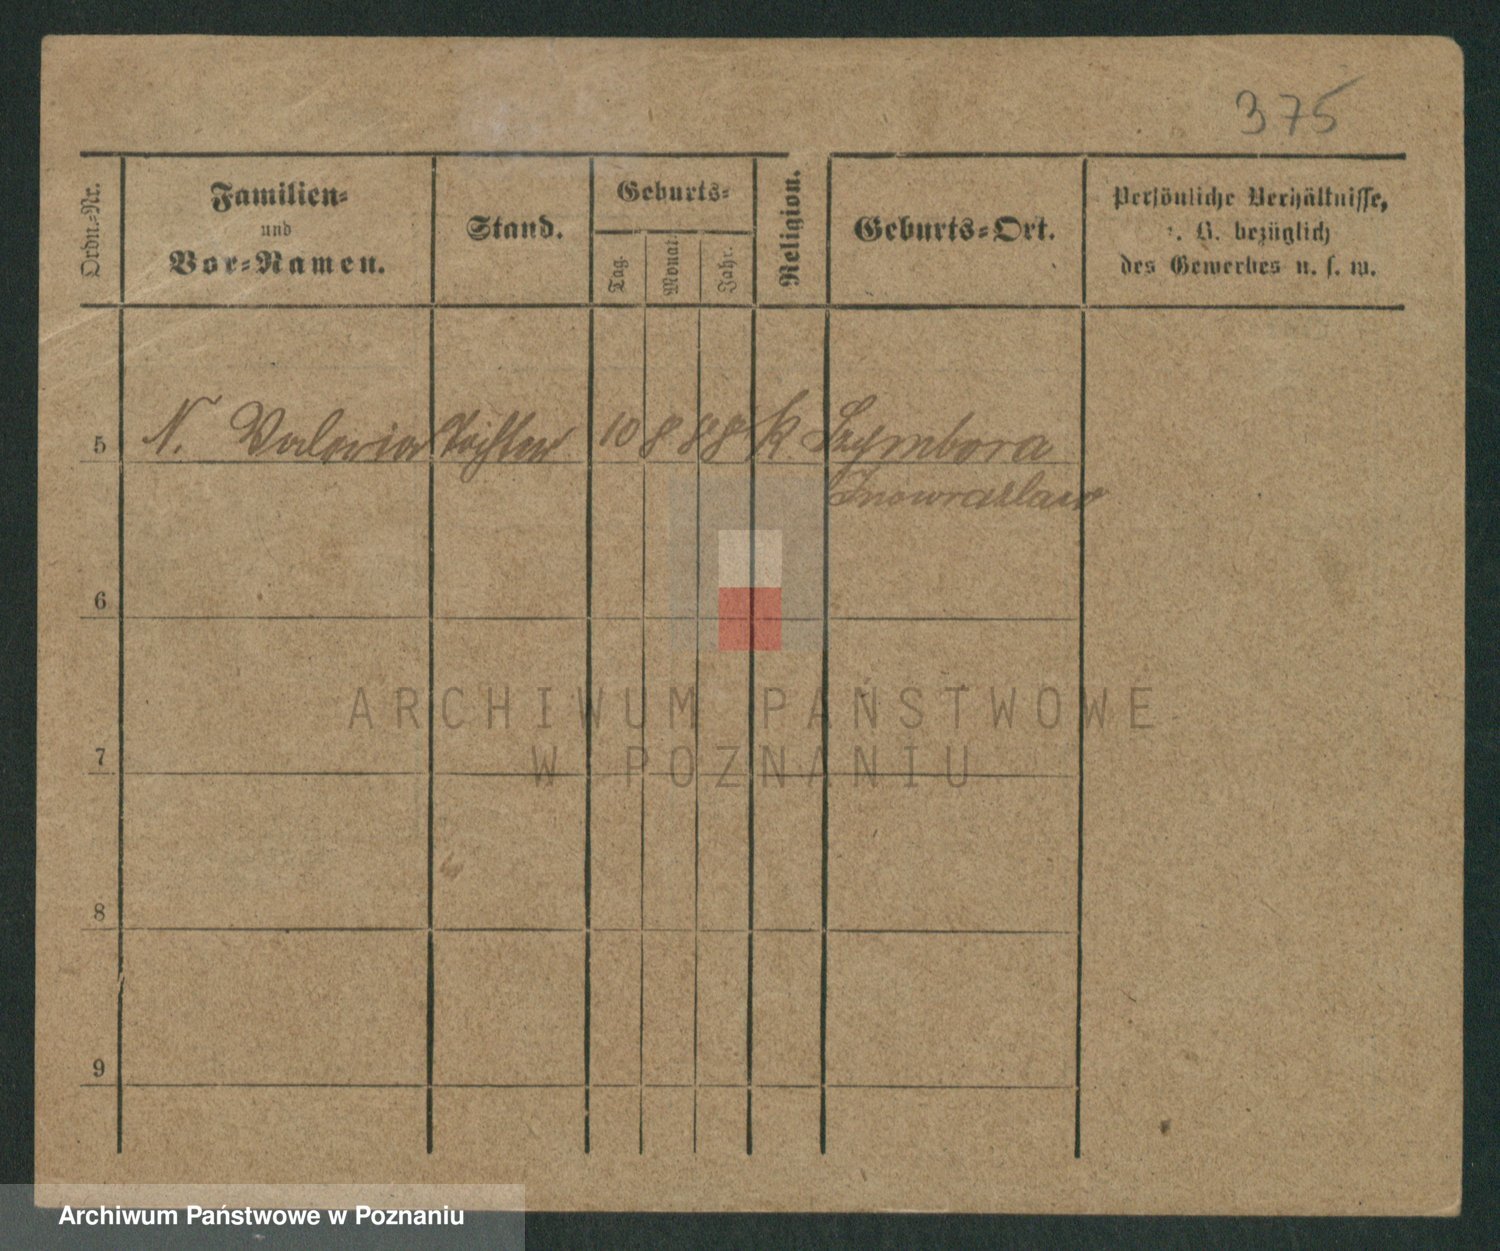 375
Ordn.-Nr.
Familien-
und
Vor-Namen.
Stand.
Geburts-
Tag.
Monat.
Jahr.
Religion.
Geburts-Ort.
Persönliche Verhältnisse,
z. B. bezüglich
des Gewerbes u. s. w.
5 N. Valeria Tochter 10 8 88 k. Szymbora
Inowrazlaw
6
7
8
9
ARCHIWUM PAŃSTWOWE
W POZNANIU
Archiwum Państwowe w Poznaniu